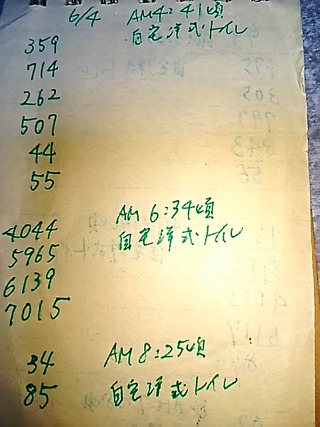 6/4 AM4:41頃
359 自宅洋式トイレ
714
262
507
44
55
AM 6:34頃
4044 自宅洋式トイレ
5965
6139
7015
34 AM 8:25頃
85 自宅洋式トイレ